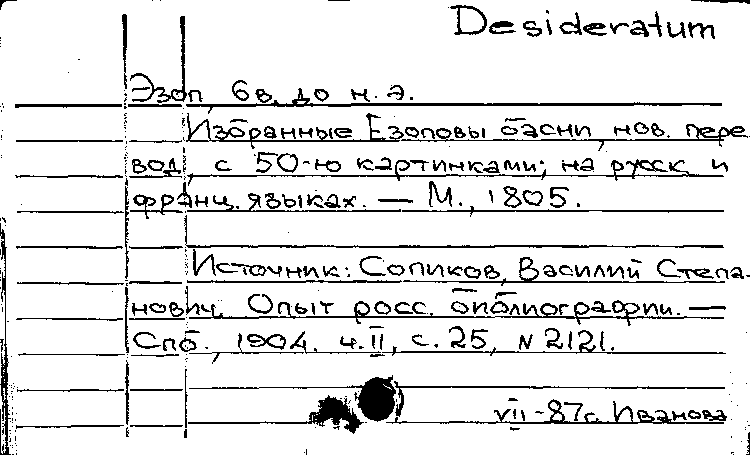 Desideratum
Эзоп, 6 в. до н.э.
Избранные Езоповы басни, нов. пере
вод, с 50-ю картинками; на русск. и
франц. языках. — М., 1805.
Источник: Сопиков, Василий Степа-
нович. Опыт росс. библиографии. —
Спб., 1904. ч. II, с. 25, N 2121.
VII-87г. Иванова